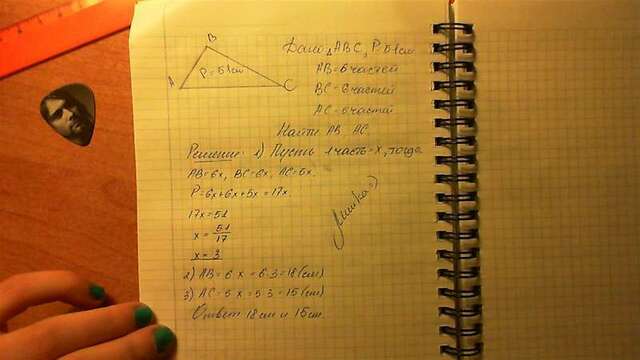 B
A
C
P=51см
Дано: △ABC, P=51см
AB=6 частей
BC=6 частей
AC=5 частей
Найти AB AC.
Решение: 1) Пусть 1 часть=x, тогда
AB=6x, BC=6x, AC=5x.
P=6x+6x+5x=17x.
17x=51
x=51/17
x=3
2) AB=6·x=6·3=18(см)
3) AC=5·x=5·3=15(см)
Ответ 18см и 15см.